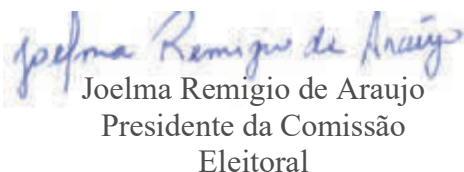 Joelma Remigio de Araujo
Joelma Remigio de Araujo
Presidente da Comissão
Eleitoral